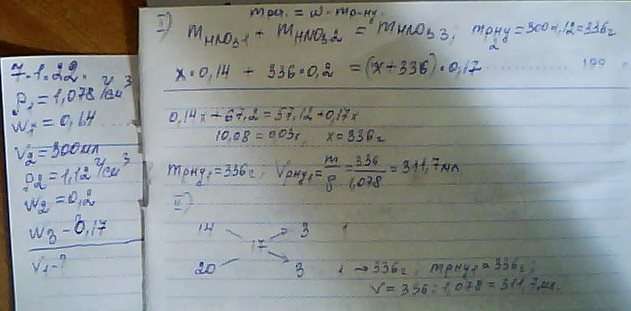 7.1.22.
ρ₁ = 1,078 г/см³
w₁ = 0,14
V₂ = 300 мл
ρ₂ = 1,12 г/см³
w₂ = 0,2
w₃ - 0,17
V₁ - ?
I)
m HNO₃1 + m HNO₃2 = m HNO₃3; m р-ну 2 = 300·1,12 = 336 г
x·0,14 + 336·0,2 = (x+336)·0,17
0,14x + 67,2 = 57,12 + 0,17x
10,08 = 0,03x, x = 336 г
m р-ну₁ = 336 г; V р-ну₁ = m/ρ = 336/1,078 = 311,7 мл
II)
14 3 1
17
20 3 1 → 336 г; m р-ну₁ = 336 г;
V = 336 : 1,078 = 311,7 мл.